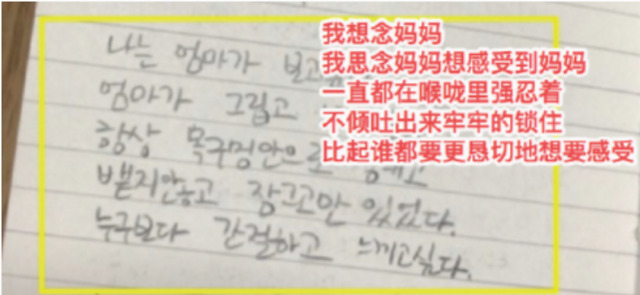 我想念妈妈
我思念妈妈想感受到妈妈
一直都在喉咙里强忍着
不倾吐出来牢牢的锁住
比起谁都要更恳切地想要感受
나는 엄마가
엄마가 그립고
항상 목구멍안으로
뱉지안놓고 잠그고만 있었다.
누구보다 간절하고 느끼고싶다.